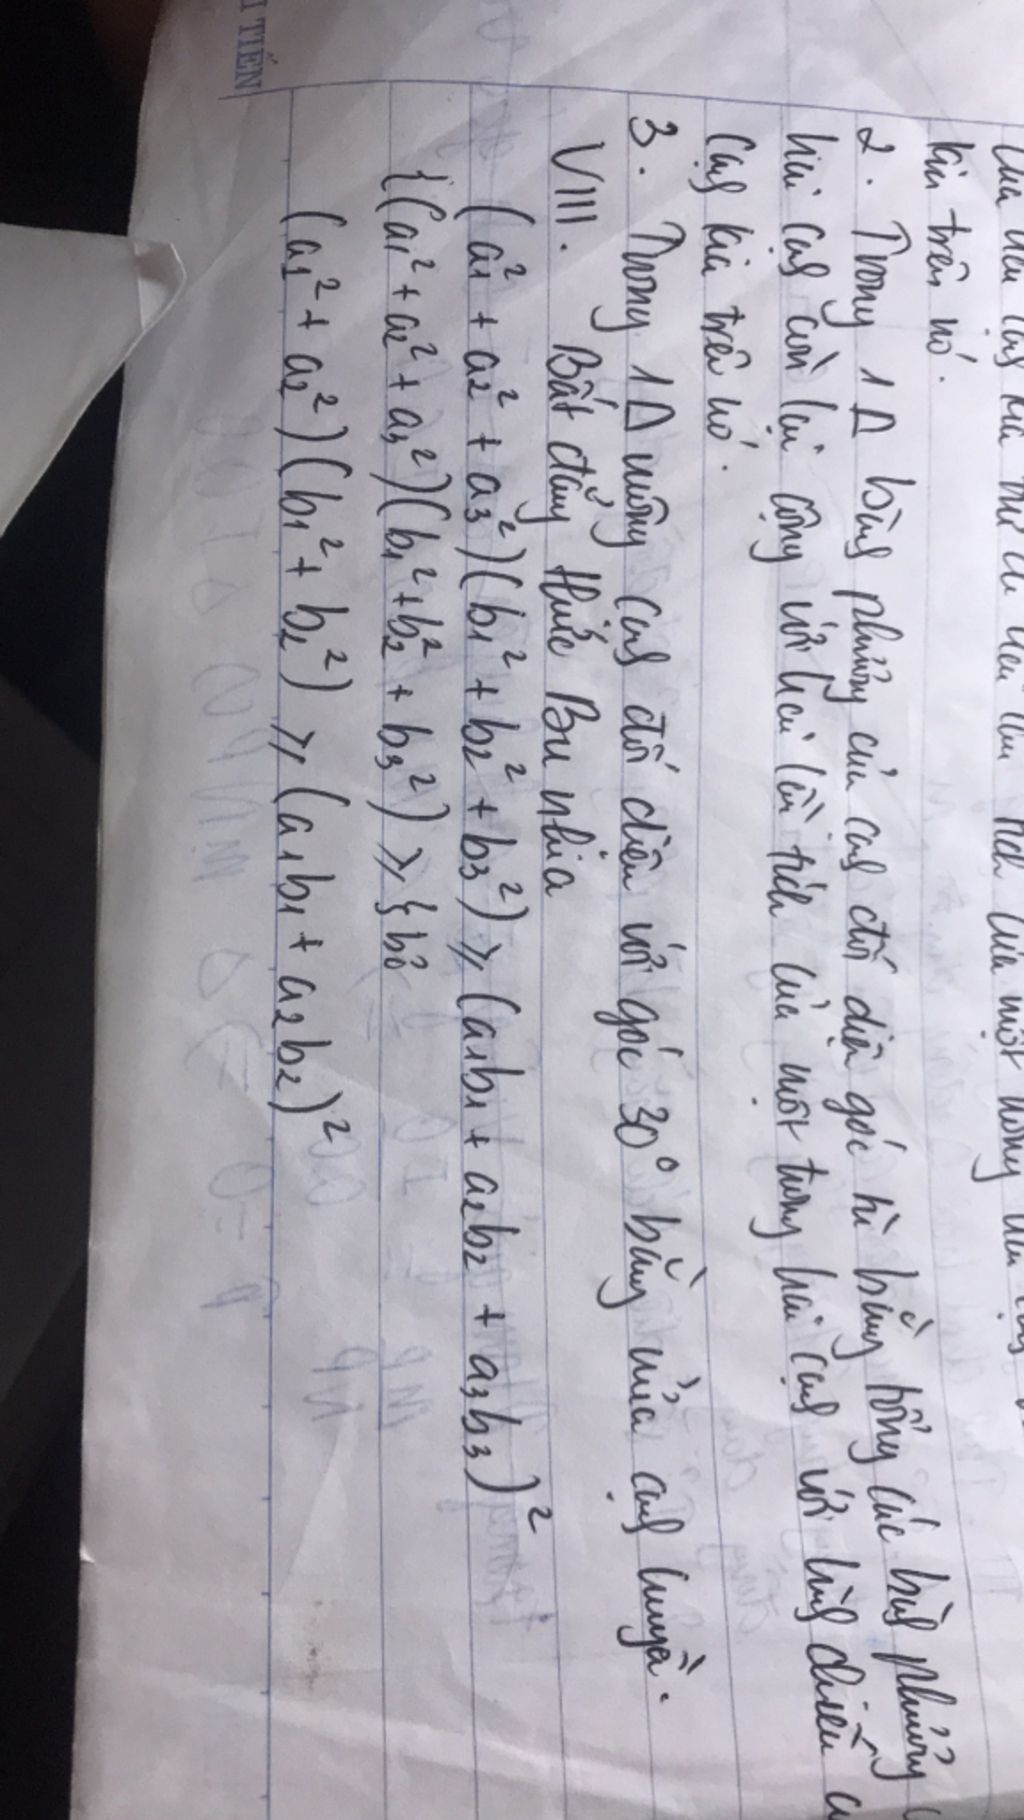 kia trên nó.
2. Trong 1 Δ bình phương của cạnh đối diện góc bằng tổng các bình phương
hai cạnh còn lại cộng với hai lần tích của một trong hai cạnh với hình chiếu
cạnh kia trên nó.
3. Trong 1 Δ vuông cạnh đối diện với góc 30° bằng nửa cạnh huyền.
VIII. Bất đẳng thức Bu nhia
(a₁² + a₂² + a₃²)(b₁² + b₂² + b₃²) ≥ (a₁b₁ + a₂b₂ + a₃b₃)²
{(a₁² + a₂² + a₃²)(b₁² + b₂² + b₃²) ≥ } bỏ
(a₁² + a₂²)(b₁² + b₂²) ≥ (a₁b₁ + a₂b₂)²
TIẾN